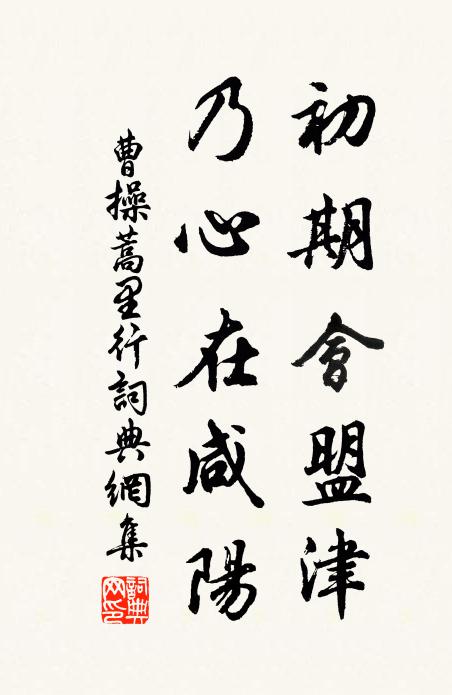 初期會盟津
乃心在咸陽
曹操蒿里行詞典網集
詞典网印